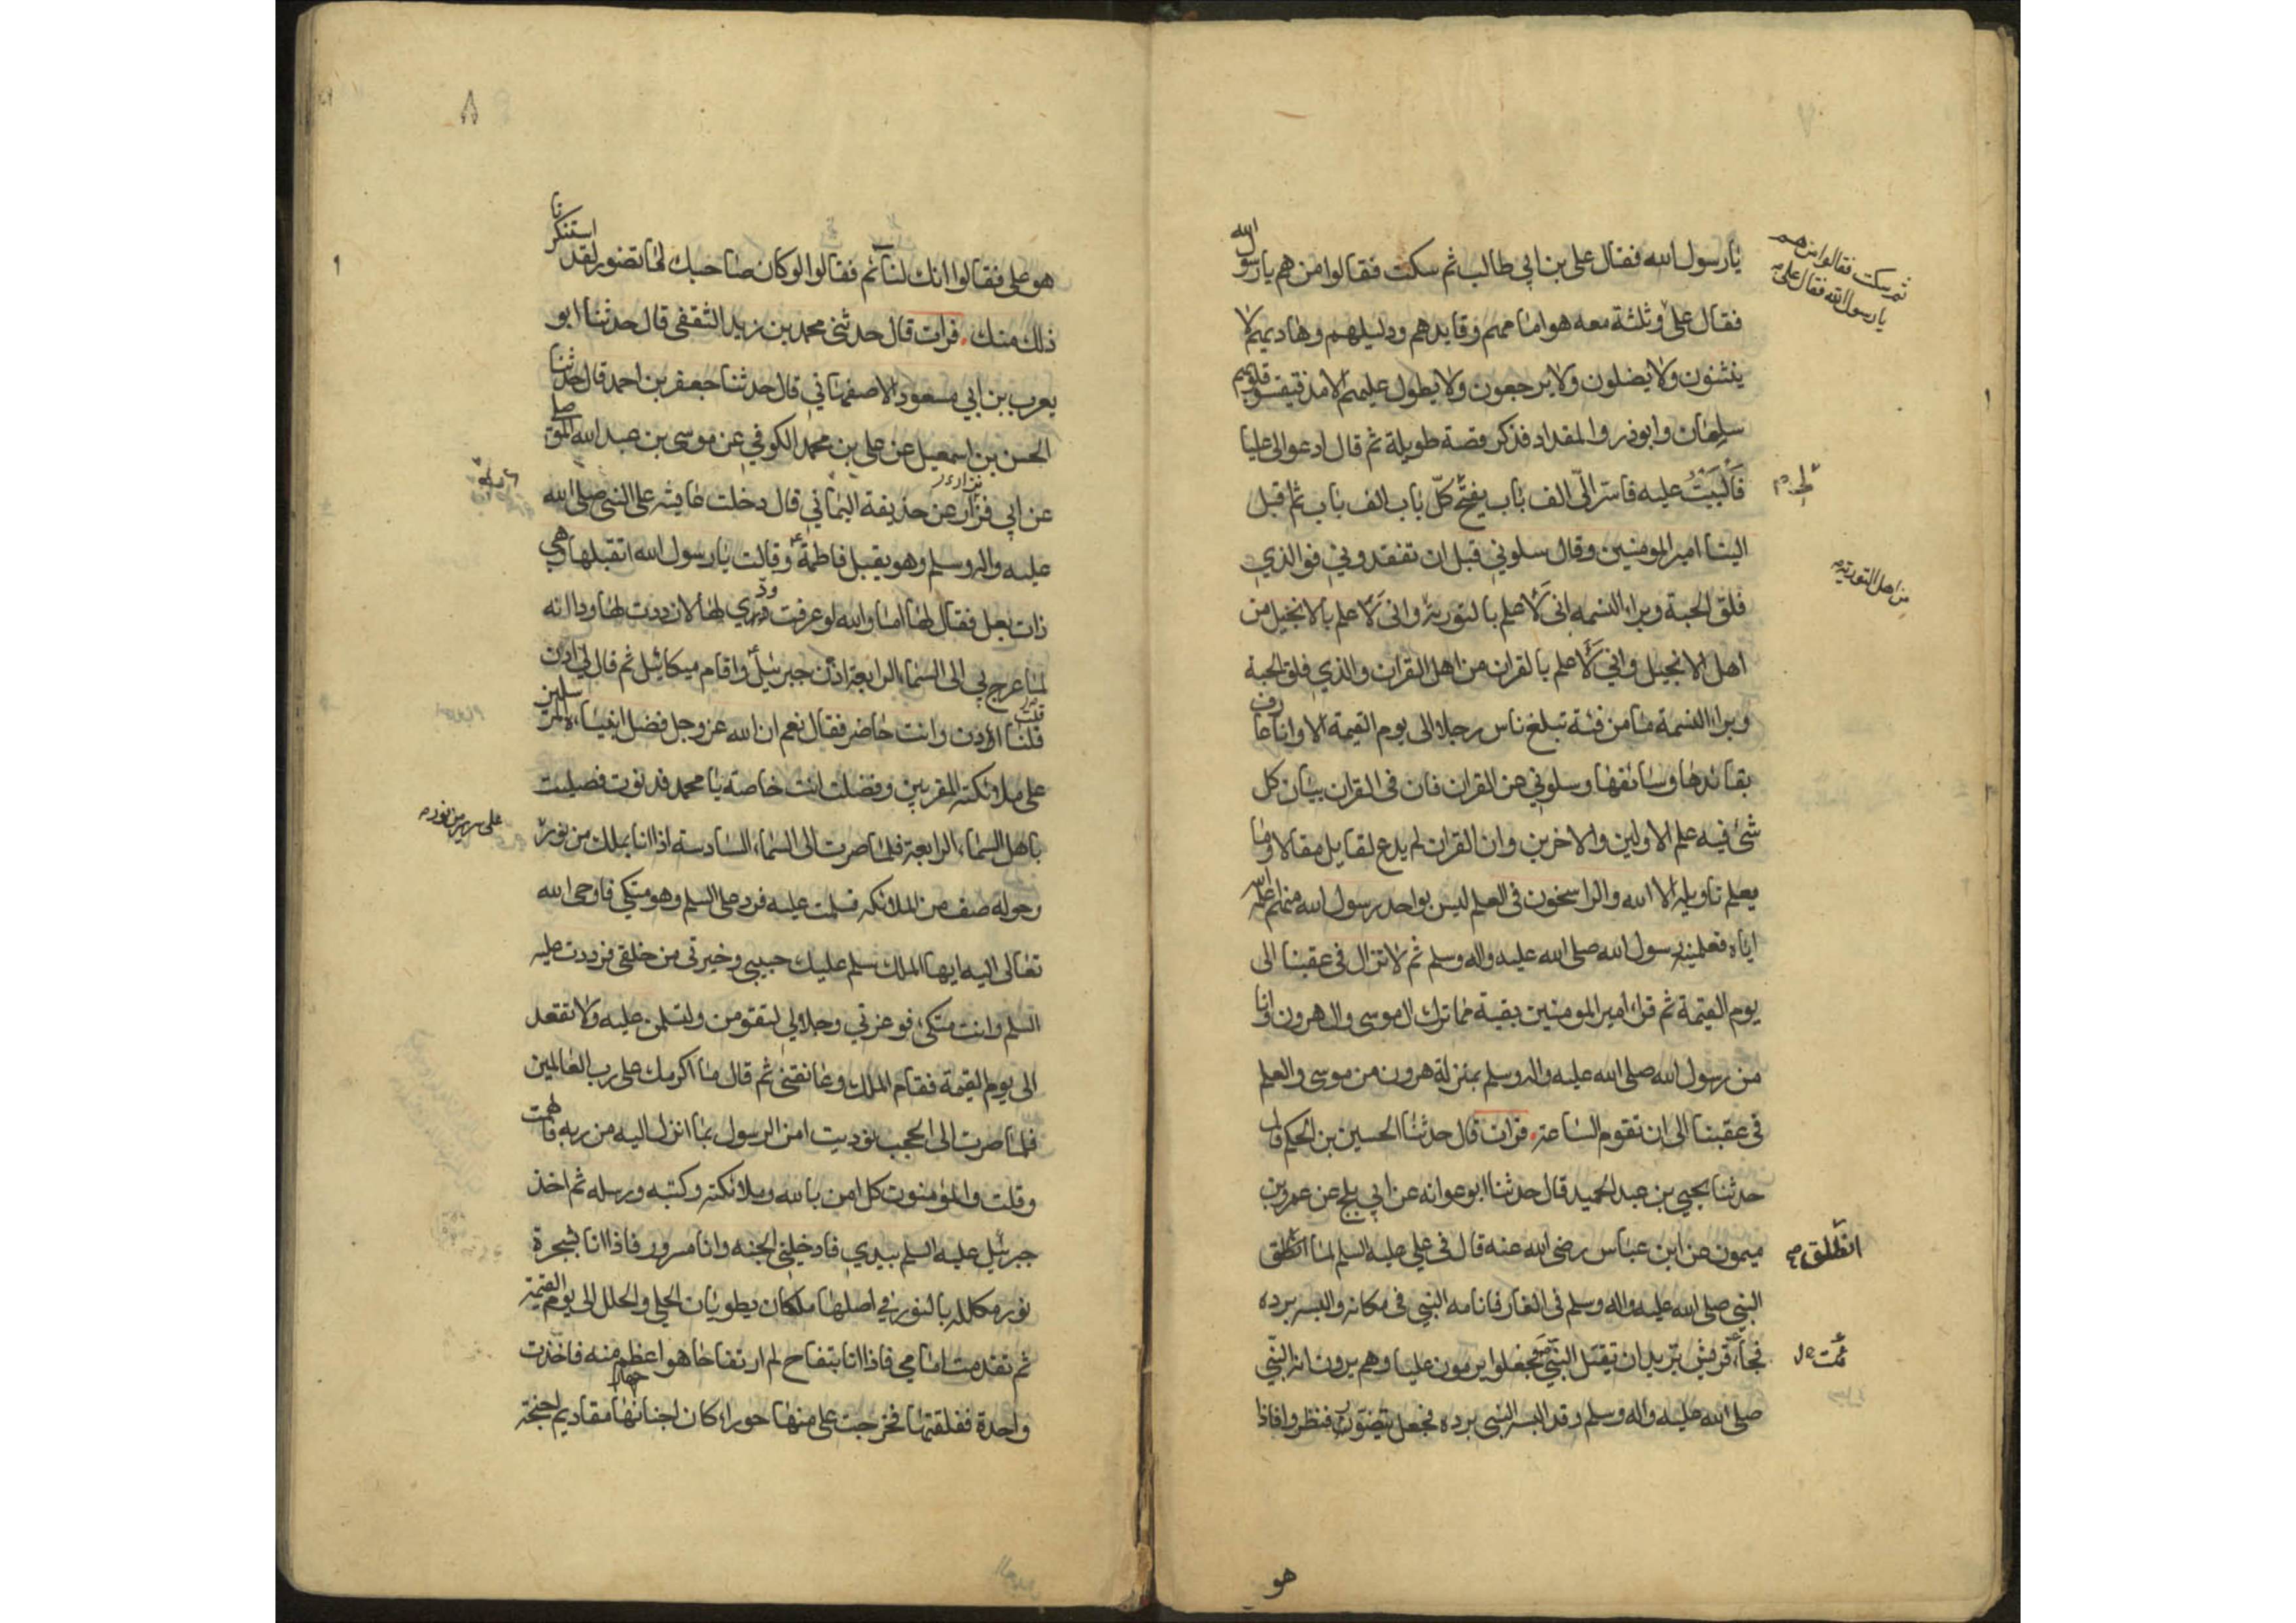 يا رسول الله فقال علي بن ابي طالب ثم سكت فقالوا من هم يا رسول الله
ثم سكت فقالوا من هم
يا رسول الله فقال علي
فقال علي وثلثة معه هو امامهم وقايدهم ودليلهم وهاديهم لا
ينثنون ولا يضلون ولا يرجعون ولا يطول عليهم الامد فتقسو قلوبهم
سلمان وابوذر والمقداد فذكر قصة طويلة ثم قال ادعوا لي عليا
فاكببت عليه فاسر الي الف باب يفتح كل باب الف باب ثم اقبل
الينا امير المومنين وقال سلوني قبل ان تفقدوني فو الذي
فلق الحبة وبراء النسمه اني لاعلم بالتورية واني لاعلم بالانجيل من
من اهل التورية
اهل الانجيل واني لاعلم بالقران من اهل القران والذي فلق الحبة
وبراء النسمة ما من فئة تبلغ ناس رجلا الى يوم القيمة الا وانا عارف
بقائدها وسائقها وسلوني عن القران فان في القران بيان كل
شئ فيه علم الاولين والاخرين وان القران لم يدع لقايل مقالا وما
يعلم تاويله الا الله والراسخون في العلم ليس بواحد رسول الله منهم اعلمه
اياه فعلمنيه رسول الله صلى الله عليه واله وسلم ثم لا تزال في عقبنا الى
يوم القيمة ثم قراء امير المومنين بقية مما ترك ال موسى وال هرون وانا
من رسول الله صلى الله عليه واله وسلم بمنزلة هرون من موسى والعلم
في عقبنا الى ان تقوم الساعة. فرات قال حدثنا الحسين بن الحكم قال
حدثنا يحيى بن عبد الحميد قال حدثنا ابو عوانه عن ابي بلج عن عمرو بن
ميمون عن ابن عباس رضي الله عنه قال في علي عليه السلم لما انطلق
انطلق
النبي صلى الله عليه واله وسلم في الغار فانامه النبي في مكانه والبسه برده
فجاء قريش تريد ان تقتل النبي فجعلوا يرمون عليا وهم يرون انه النبي
صلى الله عليه واله وسلم وقد البسه النبي برده فجعل يتضور فنظروا فاذا
هو
٨
هو علي فقالوا انك لنائم فقالوا لو كان صاحبك لما تضور لقد استنكرنا
ذلك منك. فرات قال حدثني محمد بن زيد الثقفي قال حدثنا ابو
يعرب بن ابي مسعود الاصفهاني قال حدثنا جعفر بن احمد قال حدثنا
الحسن بن اسمعيل عن علي بن محمد الكوفي عن موسى بن عبد الله الموصلي
عن ابي فزار عن حذيفة اليماني قال دخلت عايشه على النبي صلى الله
عليه واله وسلم وهو يقبل فاطمة وقالت يا رسول الله اتقبلها وهي
ذات بعل فقال لها اما والله لو عرفت ودي لها لازددت لها ودا انه
لما عرج بي الى السماء الرابعة اذن جبرئيل واقام ميكائيل ثم قال لي ادن
قلت اادن وانت حاضر فقال نعم ان الله عز وجل فضل انبياءه المرسلين
على ملائكته المقربين وفضلت انت خاصة يا محمد فدنوت فصليت
باهل السماء الرابعة فلما صرت الى السماء السادسة اذا انا بملك من نور
على سرير من نور
وحوله صف من الملائكه فسلمت عليه فرد علي السلم وهو متكي فاوحى الله
تعالى اليه ايها الملك سلم عليك حبيبي وخيرتي من خلقي فرددت عليه
السلم وانت متكئ فو عزتي وجلالي لتقومن ولتسلمن عليه ولا تقعد
الى يوم القيمة فقام الملك وعانقني ثم قال ما اكرمك على رب العالمين
فلما صرت الى الحجب نوديت امن الرسول بما انزل اليه من ربه فالهمت
وقلت والمؤمنون كل امن بالله وملائكته وكتبه ورسله ثم اخذ
جبرئيل عليه السلم بيدي فادخلني الجنه وانا مسرور فاذا انا بشجرة
نور مكلله بالنور في اصلها ملكان يطويان الحلي والحلل الى يوم القيمة
ثم تقدمت امامي فاذا انا بتفاح لم ار تفاحا هو اعظم منه فاخذت
واحدة ففلقتها فخرجت علي منها حوراء كان اجفانها مقاديم اجنحة